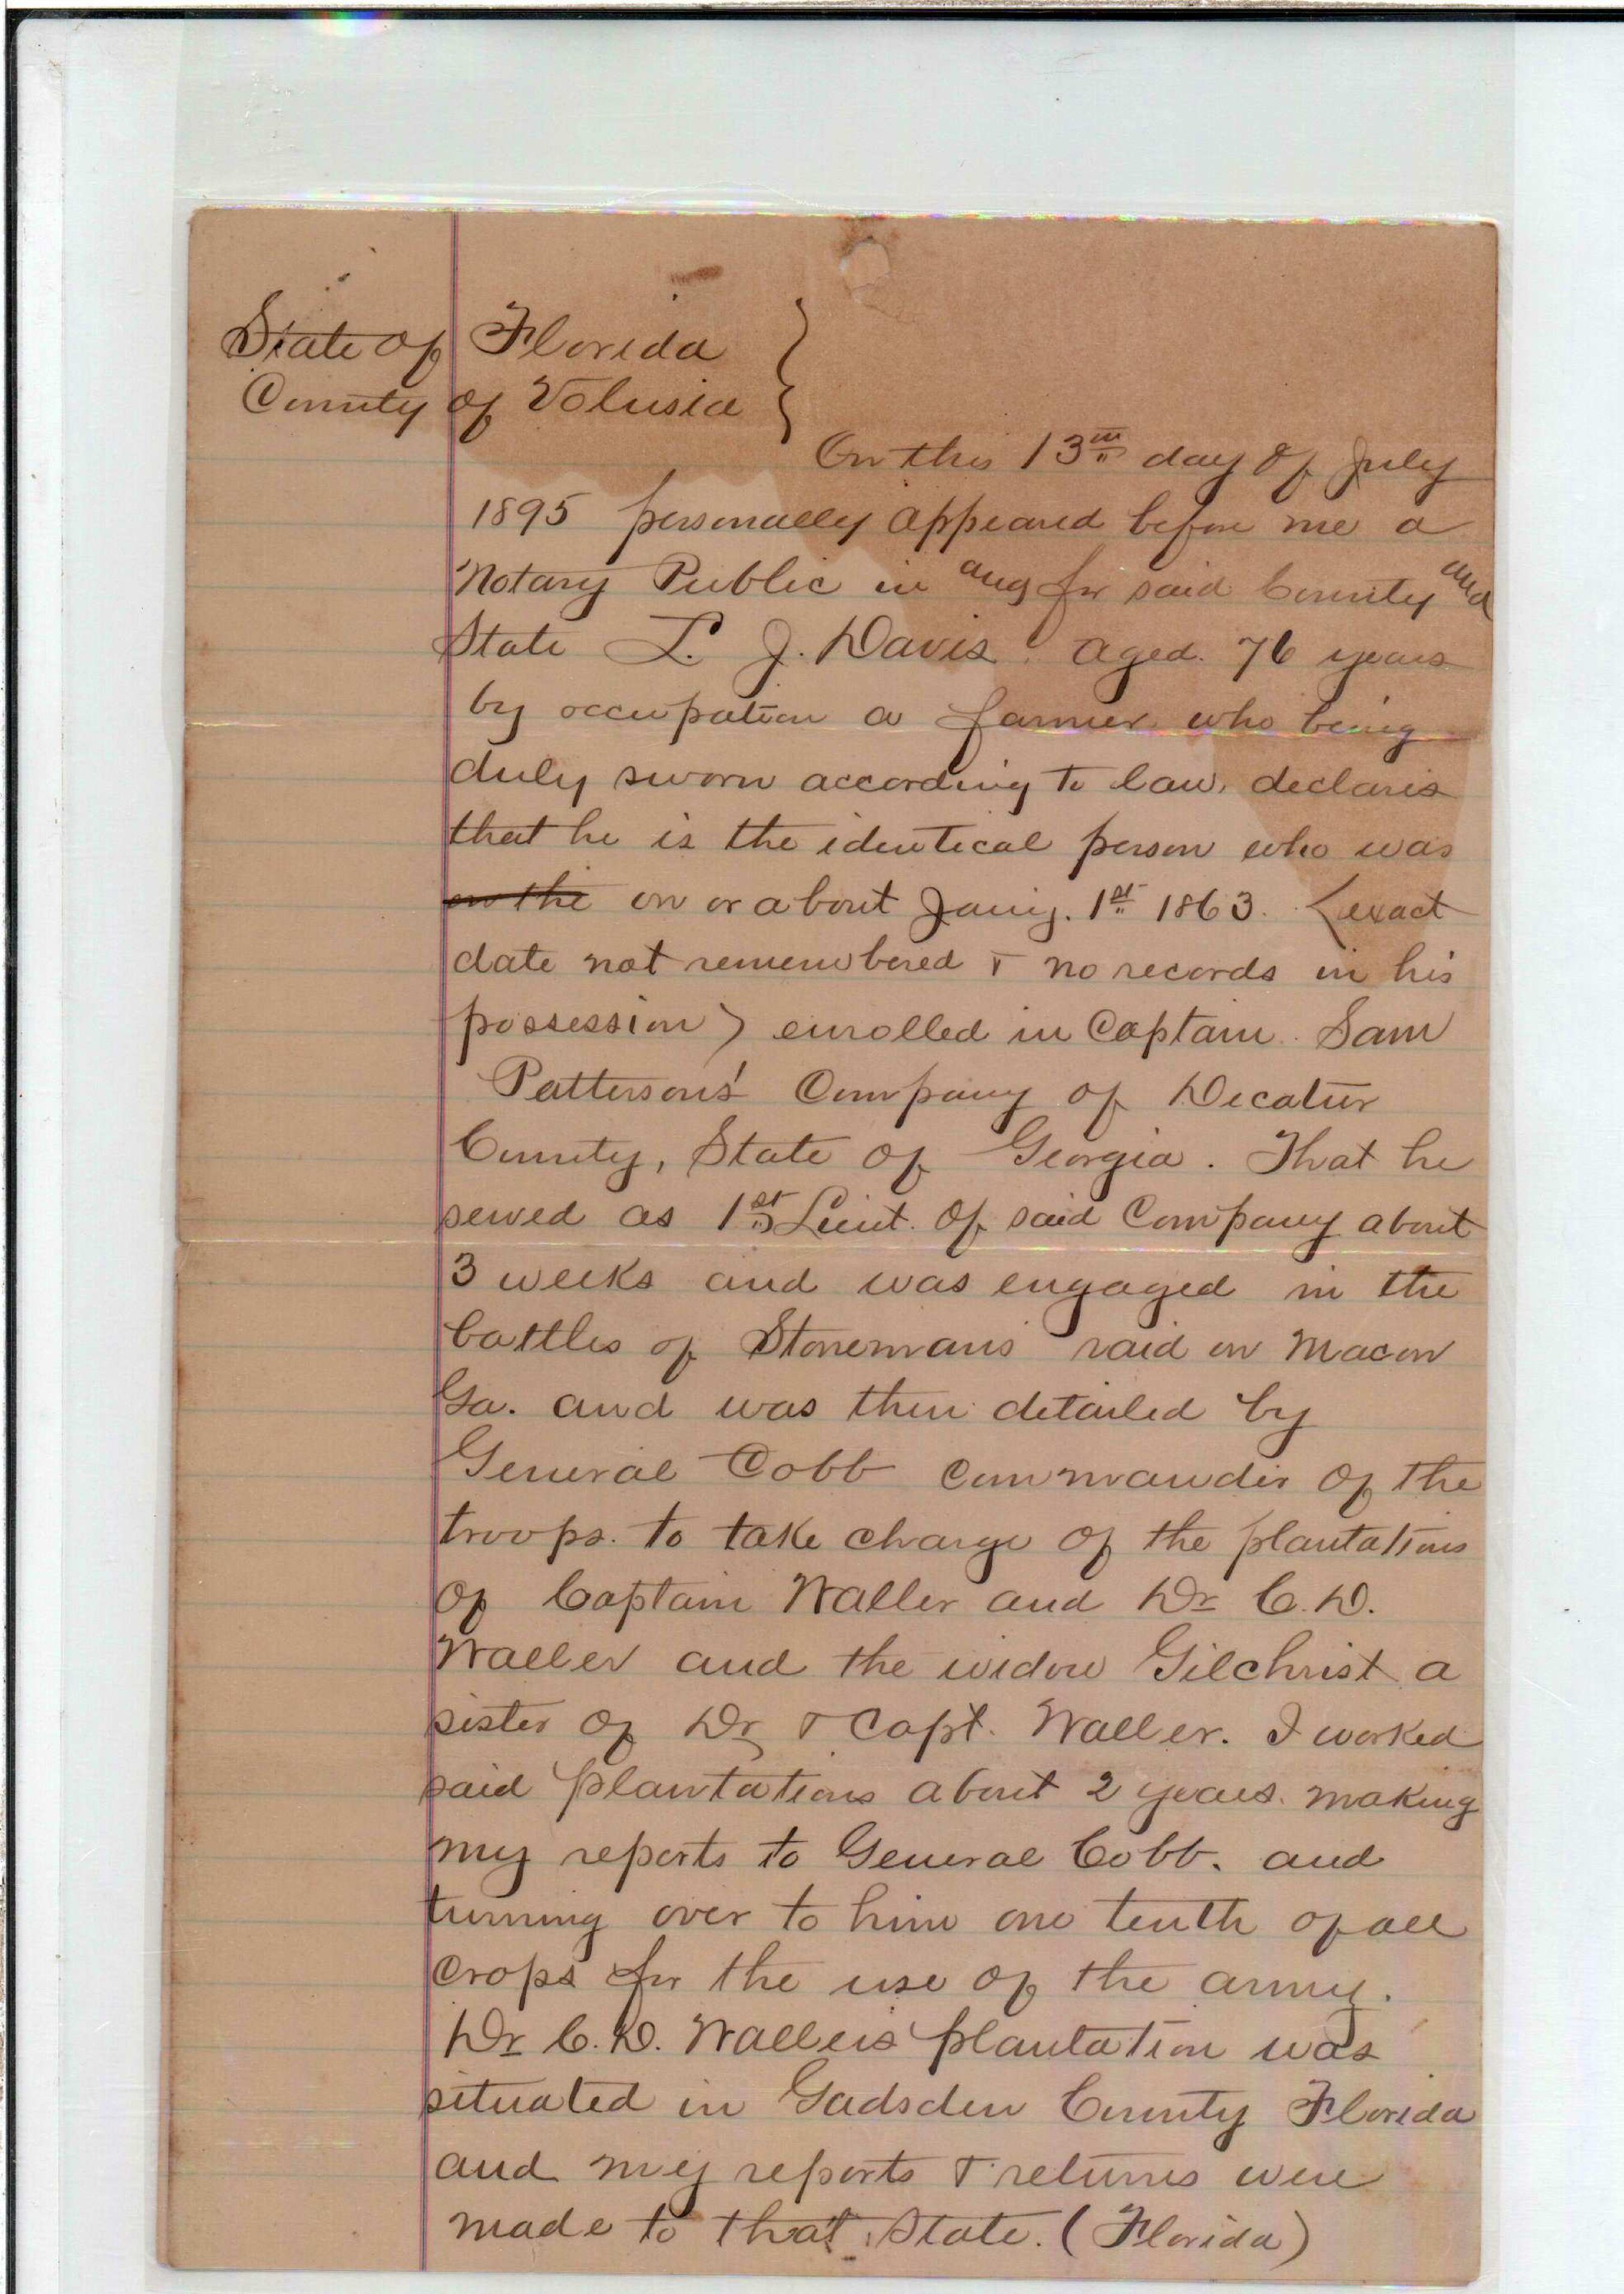 State of Florida }
County of Volusia }
On this 13th day of July
1895 personally appeared before me a
Notary Public in and for said County and
State L. J. Davis. aged. 76 years
by occupation a farmer who being
duly sworn according to law, declares
that he is the identical person who was
on the on or about Jany. 1st 1863. (exact
date not remembered & no records in his
possession) enrolled in Captain Sam
Patterson's Company of Decatur
County, State of Georgia. That he
served as 1st Lieut. of said Company about
3 weeks and was engaged in the
battles of Stonemans raid on Macon
Ga. and was then detailed by
General Cobb commander of the
troops. to take charge of the plantations
of Captain Waller and Dr C. D.
Waller and the widow Gilchrist a
sister of Dr & Capt. Waller. I worked
said plantations about 2 years. making
my reports to General Cobb. and
turning over to him one tenth of all
crops for the use of the army.
Dr C. D. Wallers plantation was
situated in Gadsden County Florida
and my reports & returns were
made to that State. (Florida)